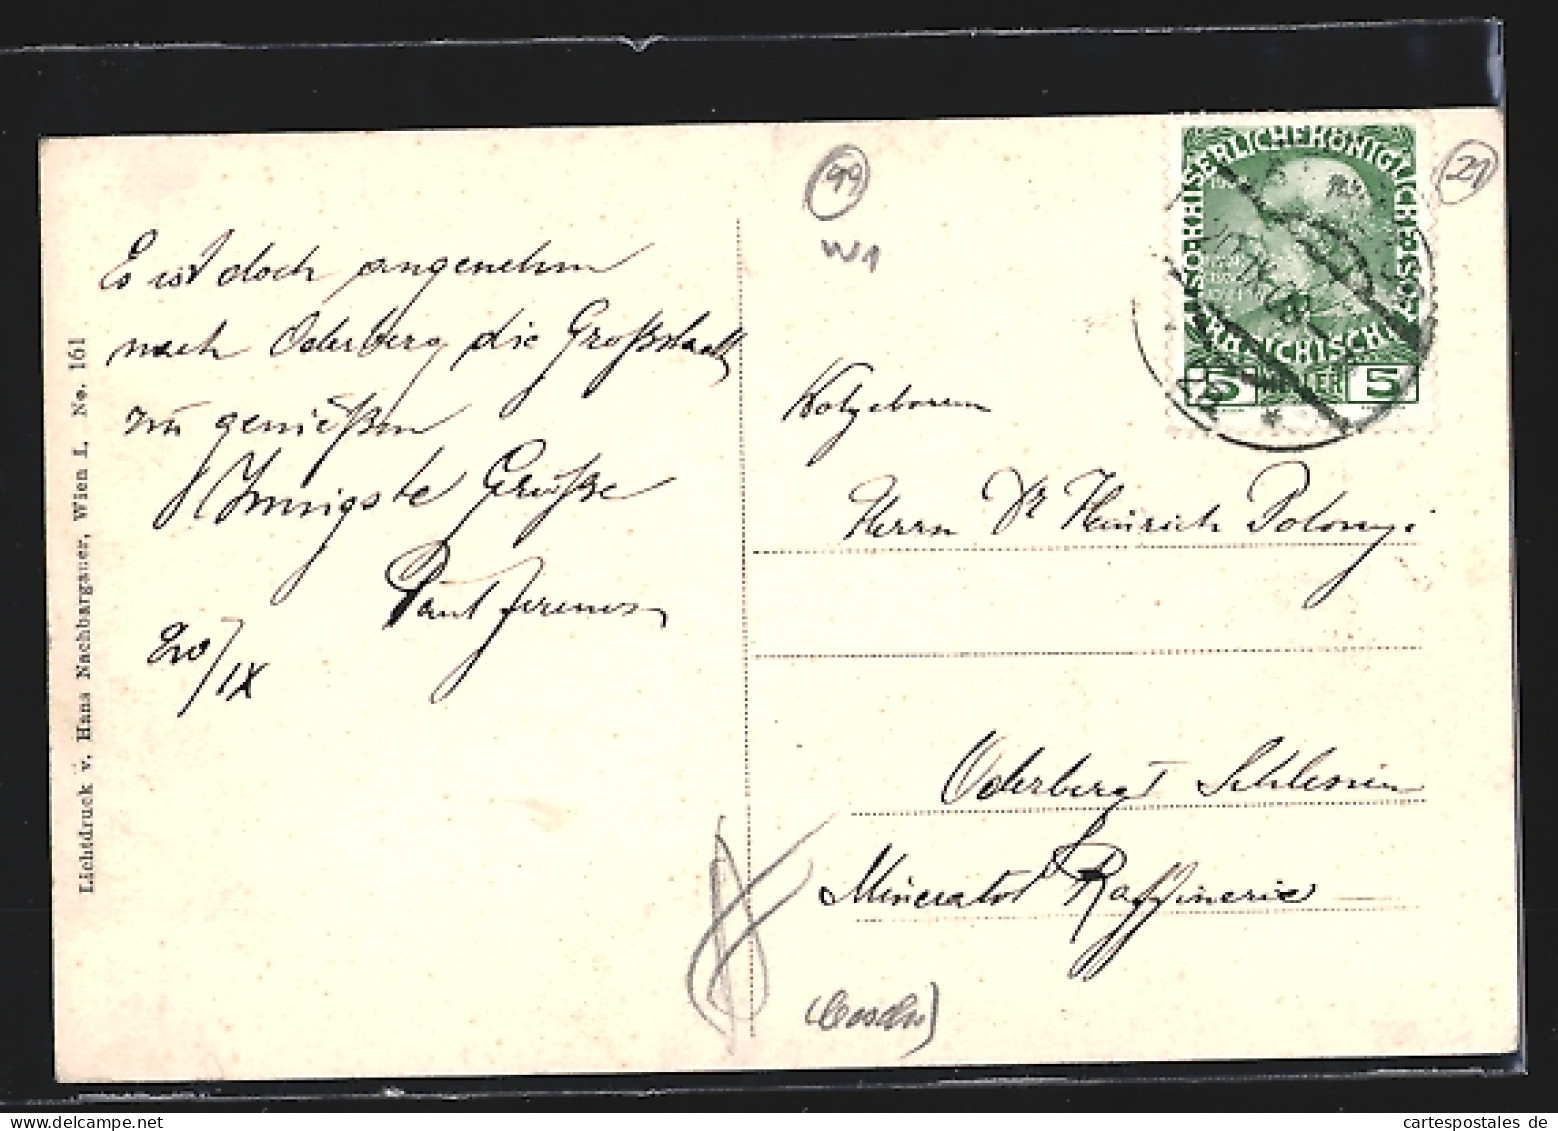 Es ist doch angenehm
nach Oderberg die Großstadt
zu genießen
Innigste Grüße
Paul
20/IX
Lichtdruck v. Hans Nachbargauer, Wien I, No. 161
99
W1
21
KAISERLICHE KÖNIGLICHE
ÖSTERREICHISCHE
5 HELLER 5
Herrn Dr Heinrich Polonyi
Oderberg Schlesien
Mineralöl Raffinerie
cartespostales.de